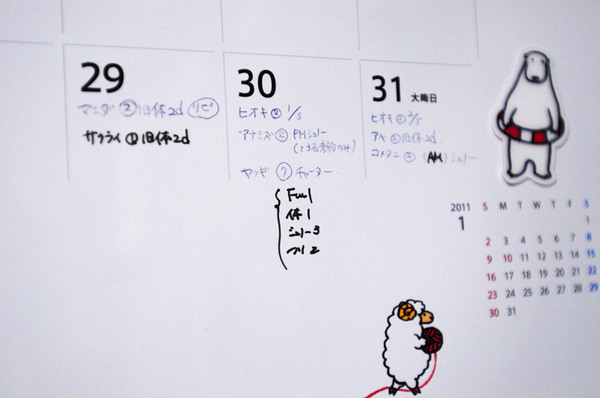 29
マニダ ② 旧体2d リピ
サクライ ① 旧体2d
30
ヒオキ ② 1/3
アナミズ ② PHジュリー
ヤツギ ⑦ チャーター
Full
体1
ジュリー3
31 大晦日
ヒオキ ② 2/3
アキ ② 旧体2d
コメタニ ② (AM) ジュリー
2011
1
S M T W T F S
1
2 3 4 5 6 7 8
9 10 11 12 13 14 15
16 17 18 19 20 21 22
23 24 25 26 27 28 29
30 31